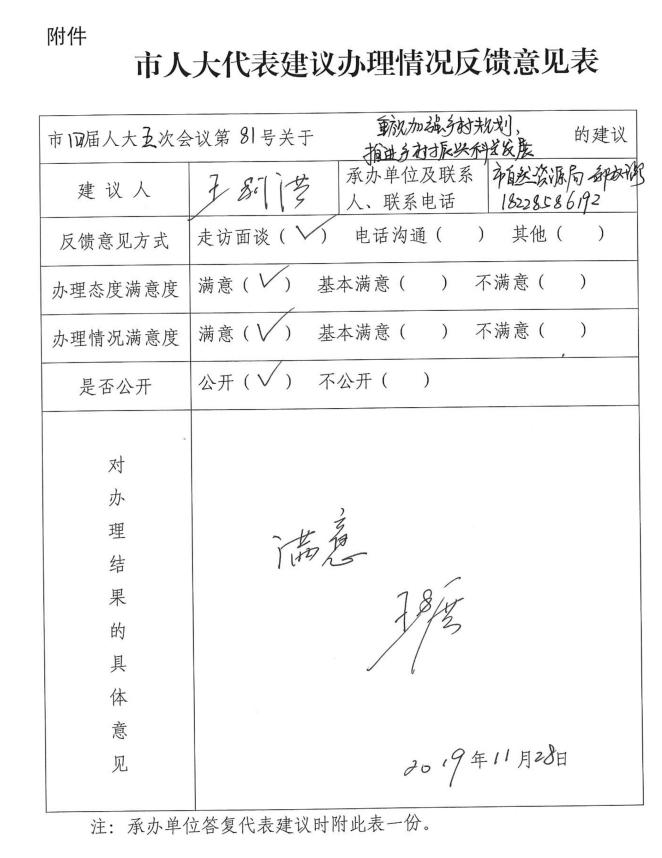 附件
市人大代表建议办理情况反馈意见表
市四届人大五次会议第81号关于 重视加强乡村规划, 的建议
推进乡村振兴科学发展
建议人 王 洪 承办单位及联系人、联系电话 市自然资源局
18228586192
反馈意见方式 走访面谈(✓) 电话沟通( ) 其他( )
办理态度满意度 满意(✓) 基本满意( ) 不满意( )
办理情况满意度 满意(✓) 基本满意( ) 不满意( )
是否公开 公开(✓) 不公开( )
对办理结果的具体意见
满意
2019年11月28日
注:承办单位答复代表建议时附此表一份。